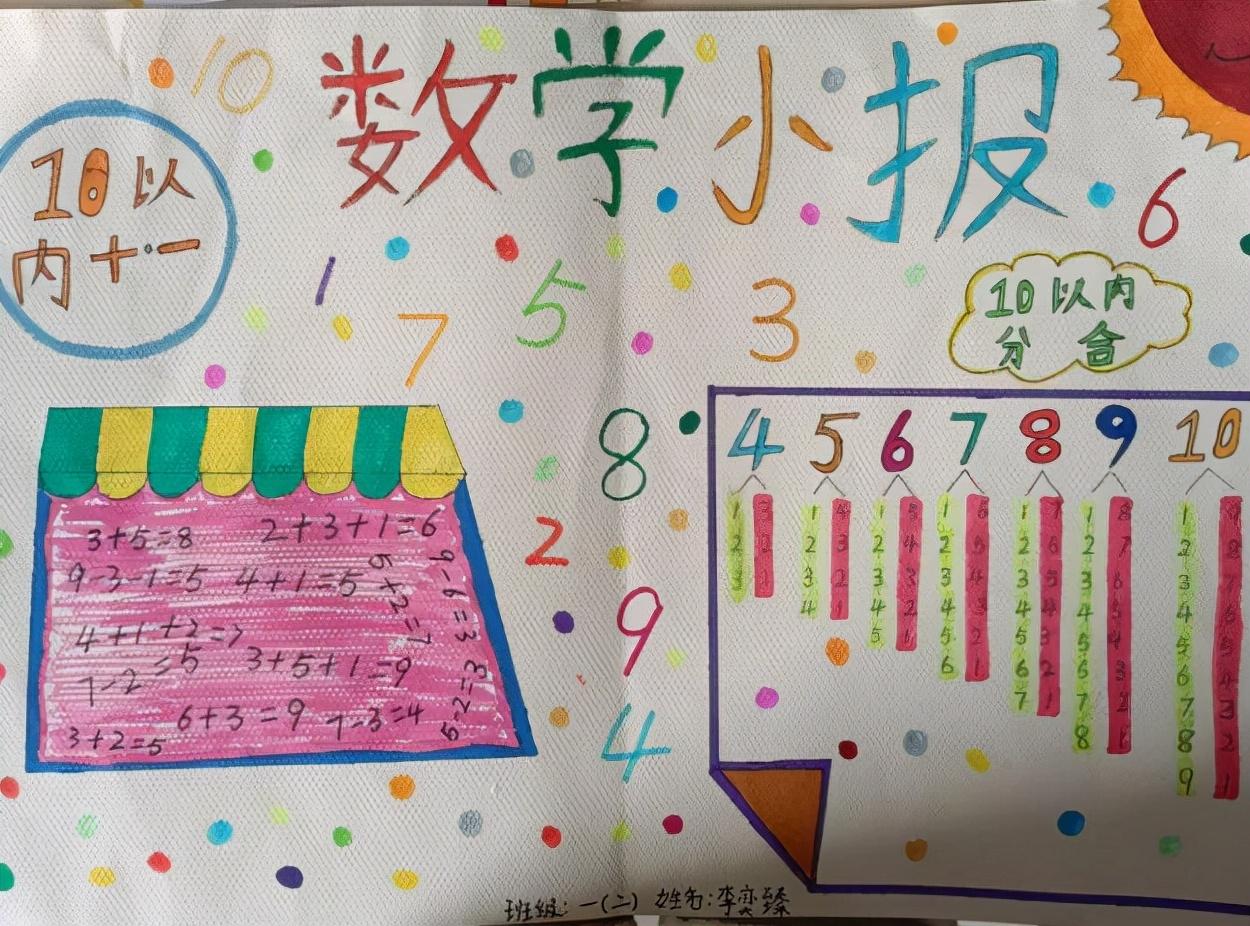 数学小报
10
10以
内十·一
6
1
7
5
3
10以内
分合
8
2
9
4
3+5=8
2+3+1=6
9-3-1=5
4+1=5
4+1+2=7
7-2=5
3+5+1=9
6+3=9
7-3=4
3+2=5
5+2=7
9-6=3
5-2=3
4 5 6 7 8 9 10
1 3 1 4 1 5 1 6 1 7 1 8 1 9
2 2 2 3 2 4 2 5 2 6 2 7 2 8
3 1 3 2 3 3 3 4 3 5 3 6 3 7
4 1 4 2 4 3 4 4 4 5 4 6
5 1 5 2 5 3 5 4 5 5
6 1 6 2 6 3 6 4
7 1 7 2 7 3
8 1 8 2
9 1
班级:一(二) 姓名:李奕臻